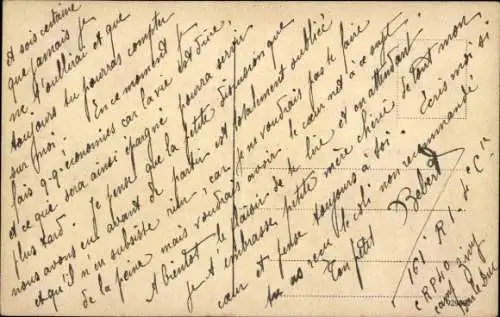 et sois certaine
que jamais je
ne t'oublierai et que
toujours tu pourras compter
sur moi. En ce moment je
fais q.q. économies car la vie est dure,
et ce que sera ainsi épargné pourra servir
plus tard. Je pense que la petite d'oneron que
nous avons eu avant de partir est totalement oubliée
et qu'il n'en subsiste rien, car je ne voudrais pas te faire
de la peine mais voudrais avoir le cœur net à ce sujet
A bientôt le plaisir de te lire et en attendant
je t'embrasse petite mère chérie de tout mon
cœur et pense toujours à toi. Ecris moi si
tu as reçu le coli non recommandé
Ton petit Bebert
161e R I d "C"
CRP40
camp
Bar le Duc